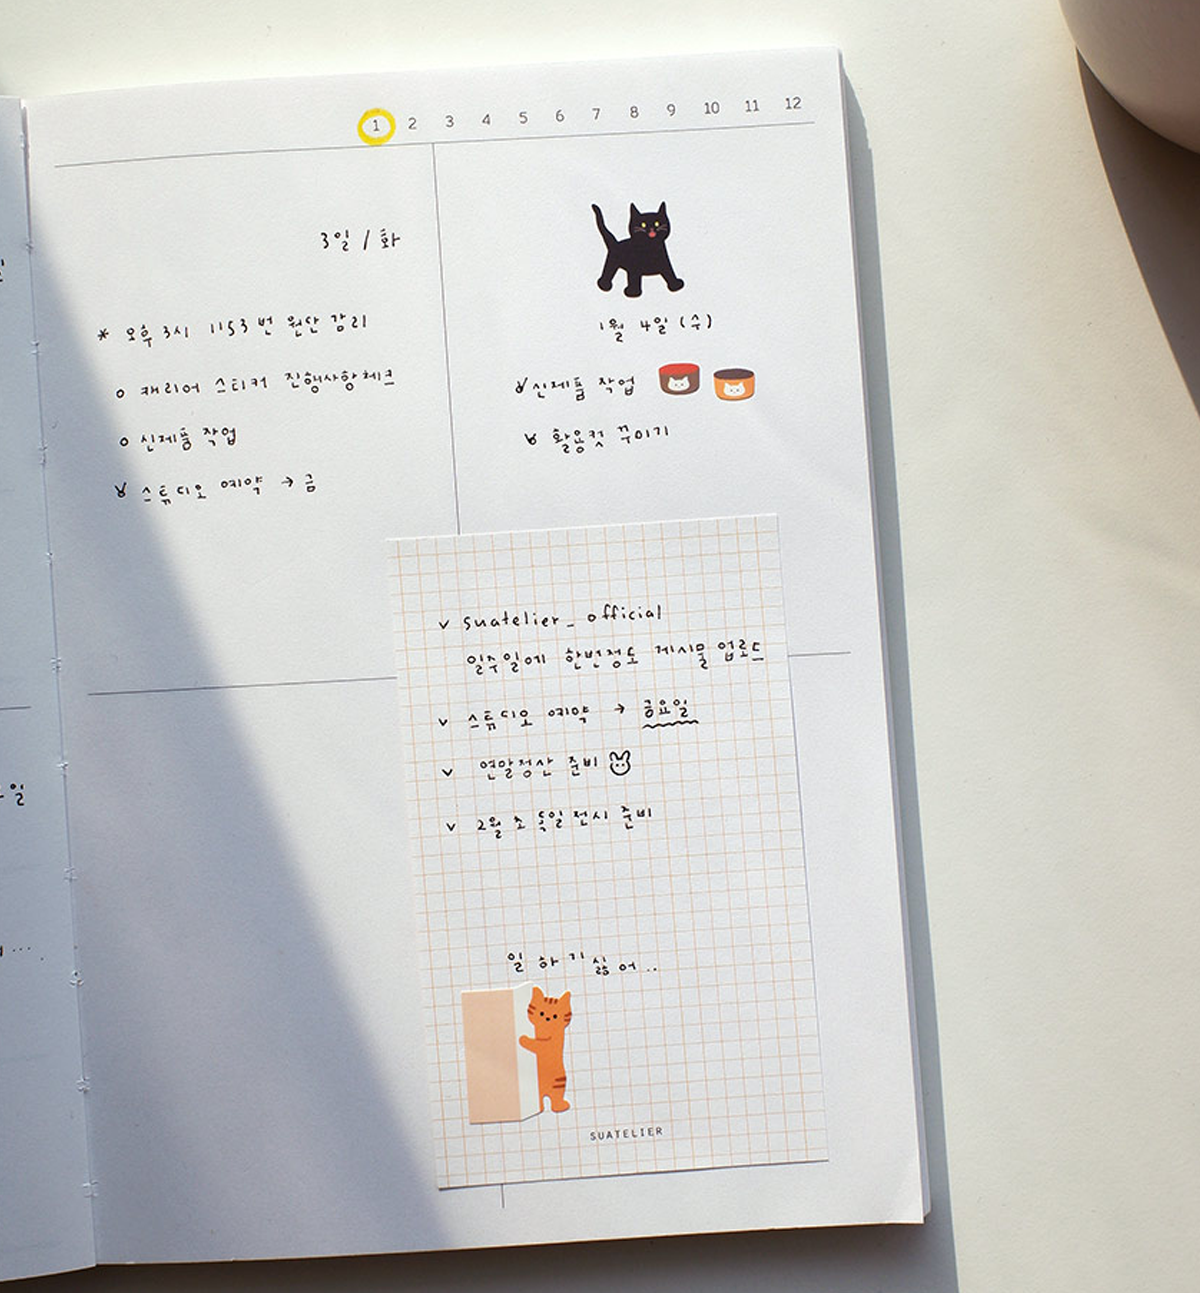 1 2 3 4 5 6 7 8 9 10 11 12
3일 / 화
* 오후 3시 1153번 원단 감리
o 캐리어 스티커 진행사항 체크
o 신제품 작업
스튜디오 예약 → 금
1월 4일 (수)
신제품 작업
활용컷 꾸미기
v suatelier_official
일주일에 한번정도 게시물 업로드
v 스튜디오 예약 → 금요일
v 연말정산 준비
v 2월 초 독일 전시 준비
일 하기 싫어..
SUATELIER
일